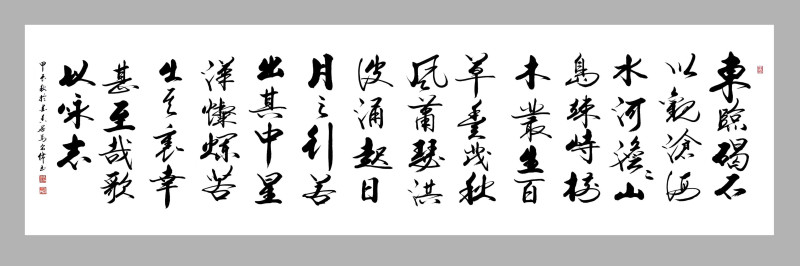 東臨碣石
以觀滄海
水河澹々山
島竦峙樹
木叢生百
草豐茂秋
風蕭瑟洪
波涌起日
月之行若
出其中星
漢燦爛若
出其裏幸
甚至哉歌
以詠志
甲午秋於